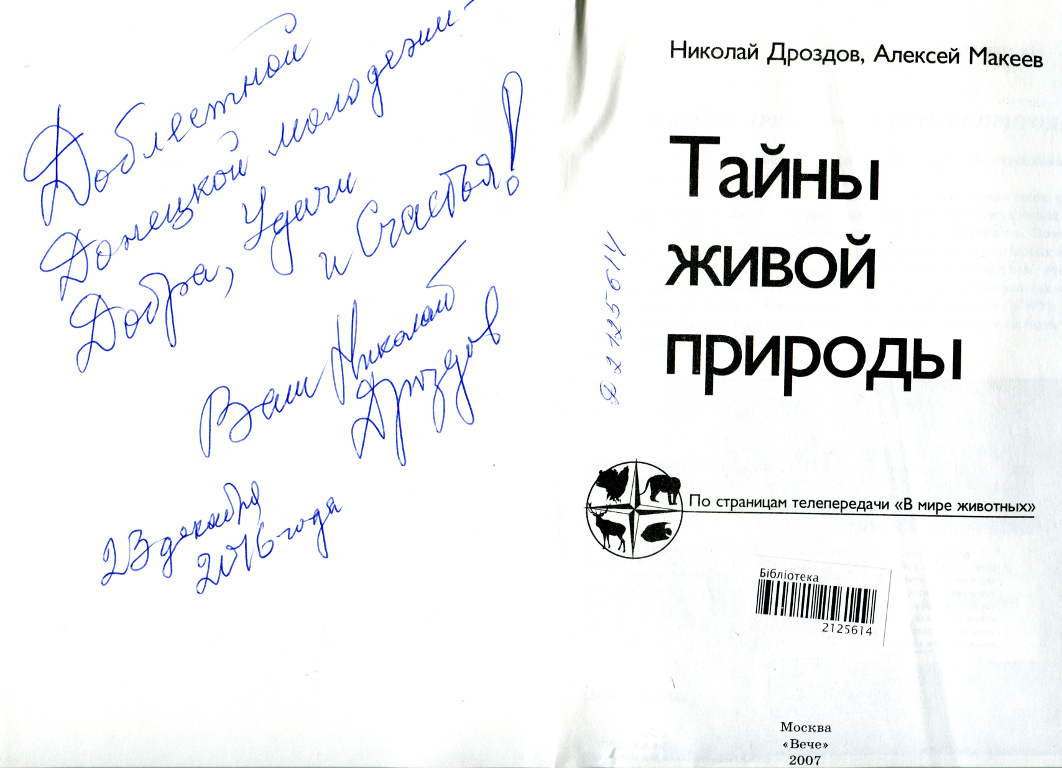 Доблестной
Донецкой молодежи –
Добра, Удачи
и Счастья!
Ваш Николай
Дроздов
23 декабря
2016 года
Николай Дроздов, Алексей Макеев
Тайны
живой
природы
Д2125614
По страницам телепередачи «В мире животных»
Бібліотека
2125614
Москва
«Вече»
2007